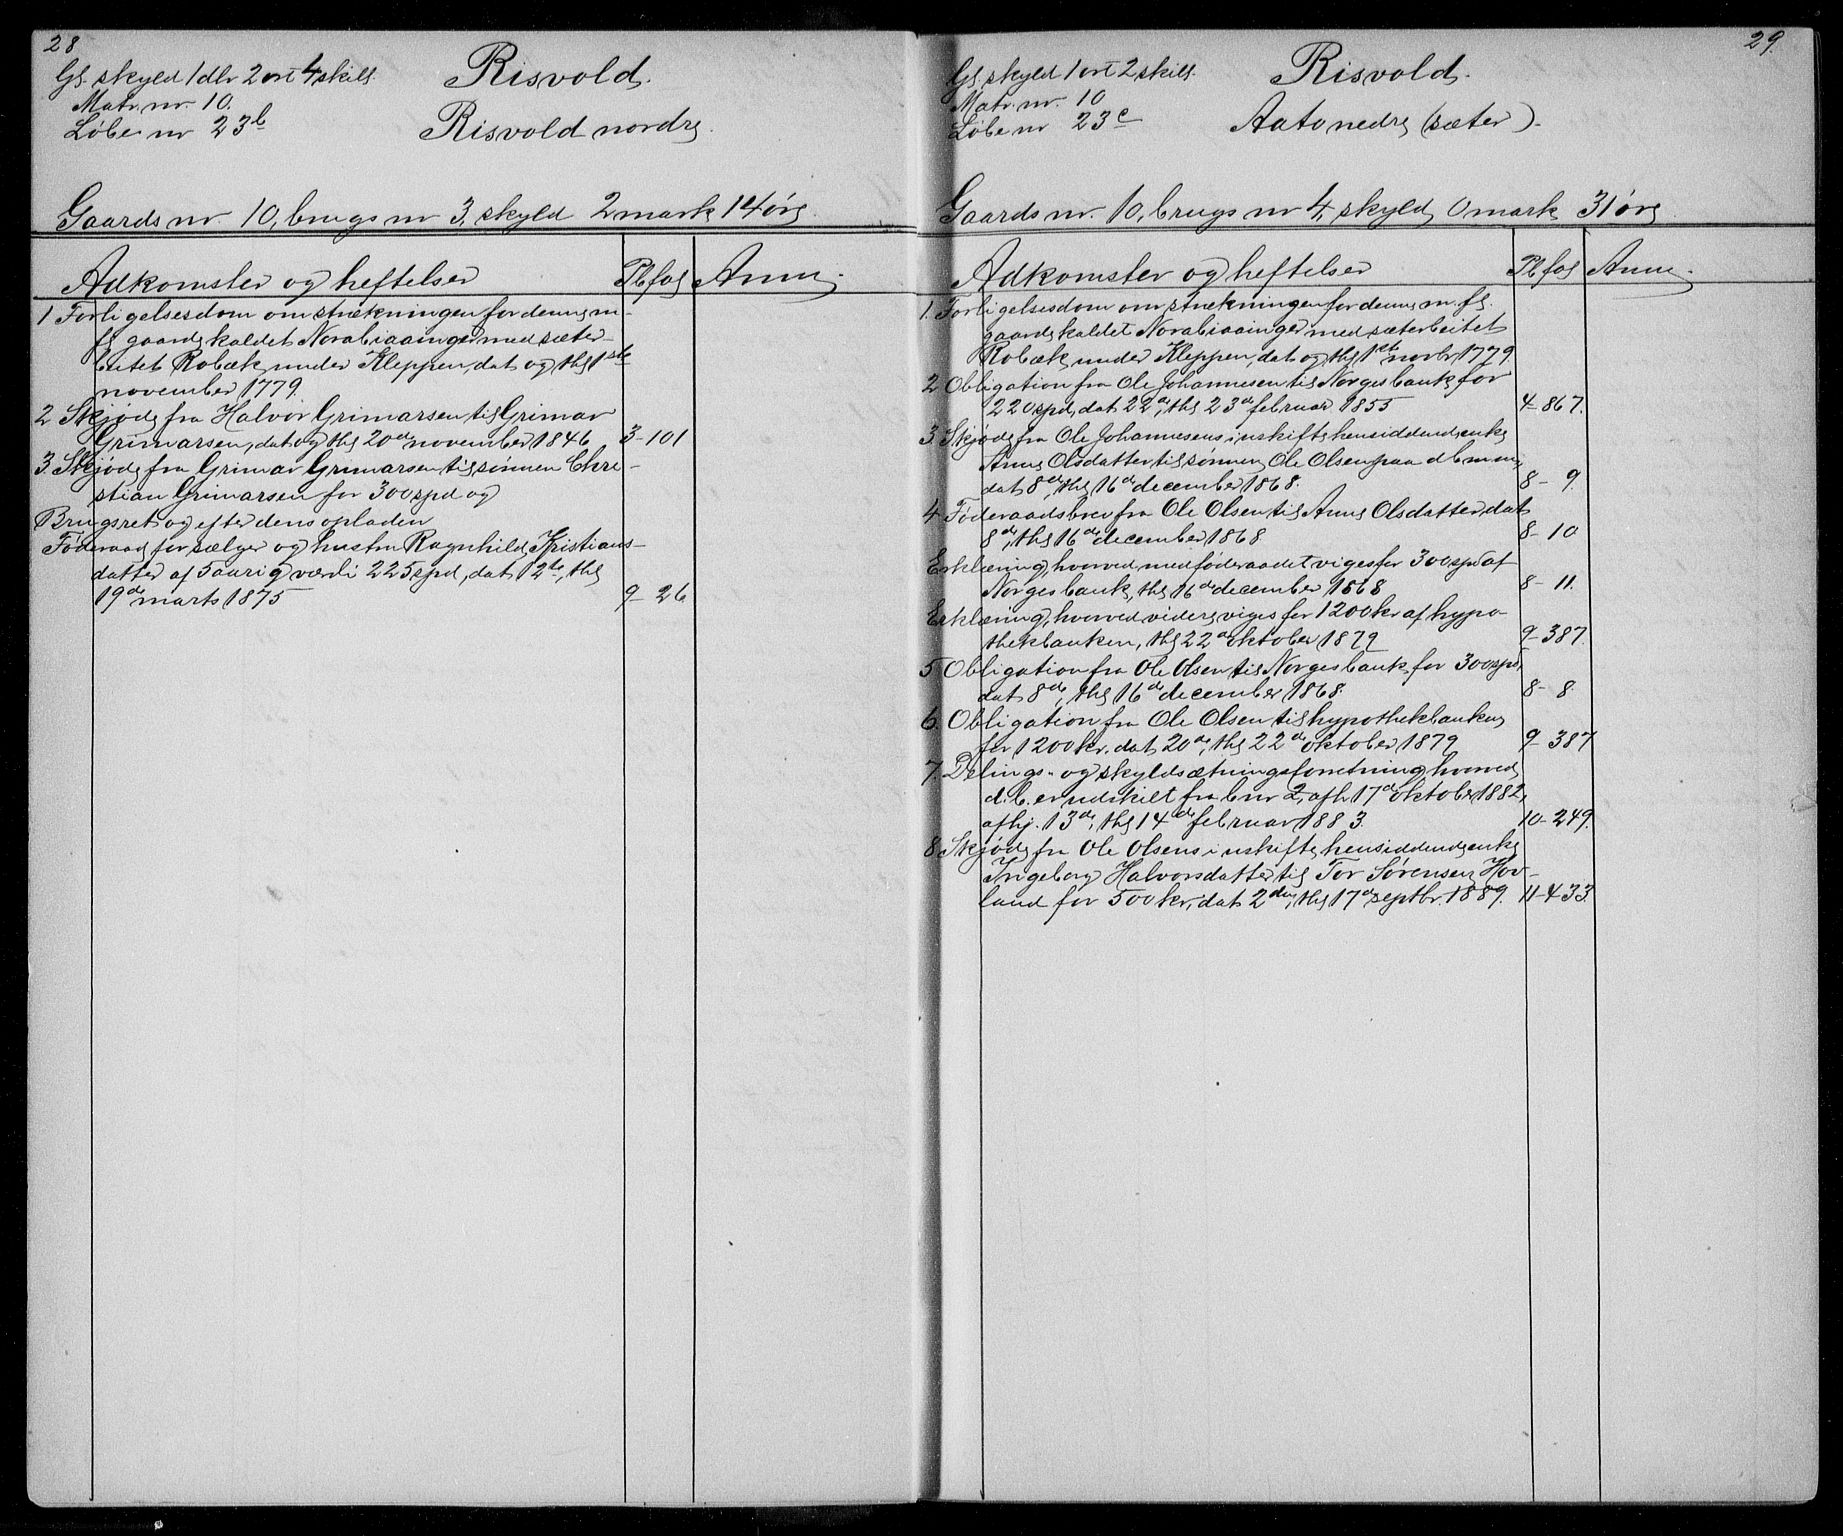 28
Gl. skyld 1 dlr 2 ort 4 skill.
Risvold.
Matr. nr. 10.
Løbe nr 23b
Risvold nordre.
Gaards nr. 10, brugs nr 3, skyld 2 mark 14 øre.
Adkomster og heftelser
Pb fol
Anm.
1 Forligelsesdom om strækningen for denne m.
fl gaarde kaldet Norabiaainger med sæter-
beitet Robæk under Kleppen, dat og thl 1ste
november 1779.
2 Skjøde fra Halvor Grimarsen til Grimar
Grimarsen, dat og thl 20de november 1846 3-101
3. Skjøde fra Grimar Grimarsen til sønnen Chri-
stian Grimarsen for 300 spd og
Brugsret og efter dens opladen
Føderaad for sælger og hustru Ragnhild Kristians-
datter af 5 aarig værdi 225 spd, dat 12te, thl
19de marts 1875 9-26
29.
Gl. skyld 1 ort 2 skill.
Risvold.
Matr. nr. 10
Løbe nr 23c
Aato nedre (sæter).
Gaards nr. 10, brugs nr 4, skyld 0 mark 31 øre
Adkomster og heftelser
Pb fol
Anm.
1. Forligelsesdom om strækningen for denne m. fl.
gaarde kaldet Norabiaainger med sæterbeitet
Robæk under Kleppen, dat og thl 1ste novbr 1779.
2 Obligation fra Ole Johannesen til Norges bank for
220 spd, dat 22de, thl 23de februar 1855 4-867.
3 Skjøde fra Ole Johannesens i uskifte hensiddende enke
Anne Olsdatter til sønnen Ole Olsen paa d b m m,
dat 8de, thl 16de december 1868. 8-9.
4 Føderaadsbrev fra Ole Olsen til Anne Olsdatter, dat
8de, thl 16de december 1868 8-10
Erklæring, hvorved med føderaadet viges for 300 spd af
Norges bank, thl 16de december 1868 8-11.
Erklæring, hvorved videre viges for 1200 kr af hypo-
thekbanken, thl 22de oktober 1879 9-387.
5 Obligation fra Ole Olsen til Norges bank for 300 spd,
dat 8de, thl 16de december 1868. 8-8.
6. Obligation fra Ole Olsen til hypothekbanken
for 1200 kr. dat 20de, thl 22de oktober 1879 9-387
7. Delings- og skyldsætningsforretning, hvorved
d. b. er udskilt fra bnr 2, afh 17de oktober 1882,
afhj. 13de, thl 14de februar 1883. 10-249.
8 Skjøde fra Ole Olsens i uskifte hensiddende enke
Ingeborg Halvorsdatter til Tor Sørensen Hov-
land for 500 kr, dat 2den, thl 17de septbr. 1889. 11-433.